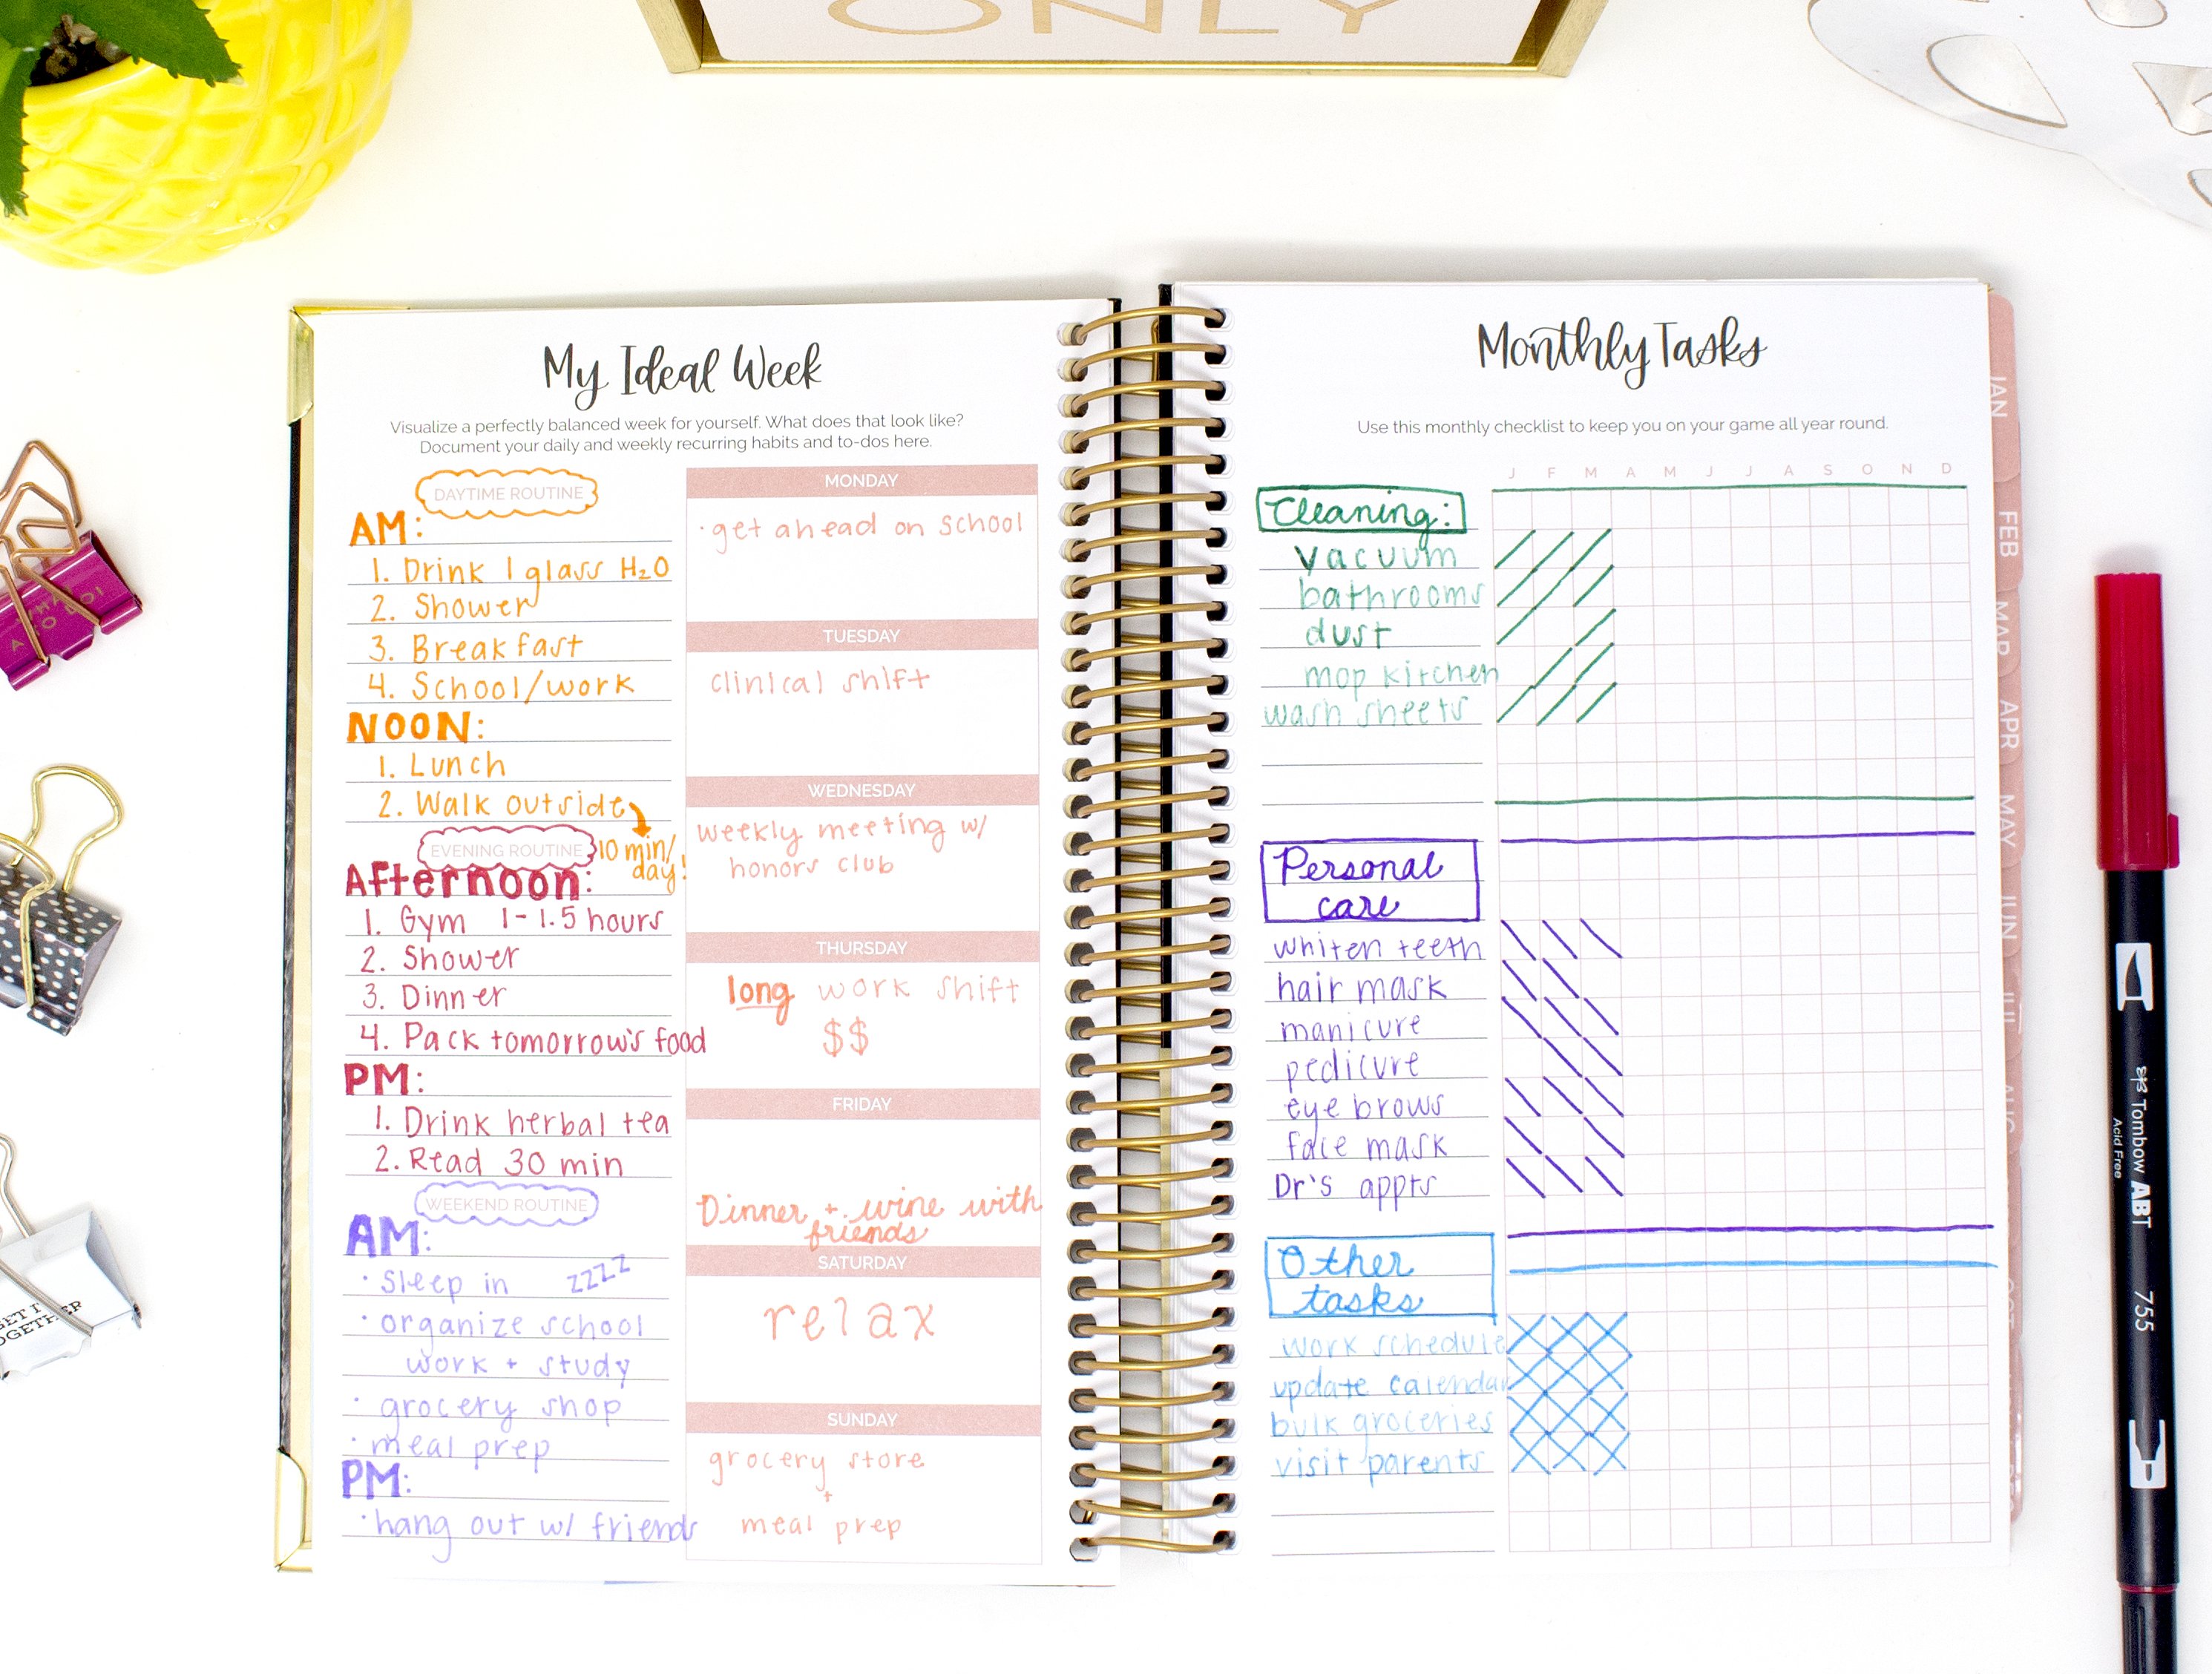 ONLY
My Ideal Week
Visualize a perfectly balanced week for yourself. What does that look like?
Document your daily and weekly recurring habits and to-dos here.
DAYTIME ROUTINE
AM:
1. Drink 1 glass H₂O
2. Shower
3. Breakfast
4. School/work
NOON:
1. Lunch
2. Walk outside
10 min/
day!
EVENING ROUTINE
Afternoon:
1. Gym 1-1.5 hours
2. Shower
3. Dinner
4. Pack tomorrow's food
PM:
1. Drink herbal tea
2. Read 30 min
WEEKEND ROUTINE
AM:
· Sleep in zzzz
· organize school
work + study
· grocery shop
· meal prep
PM:
· hang out w/ friends
MONDAY
· get ahead on school
TUESDAY
clinical shift
WEDNESDAY
weekly meeting w/
honors club
THURSDAY
long work shift
$$
FRIDAY
Dinner + wine with
friends
SATURDAY
relax
SUNDAY
grocery store
+
meal prep
Monthly Tasks
Use this monthly checklist to keep you on your game all year round.
J F M A M J J A S O N D
Cleaning:
vacuum
bathrooms
dust
mop kitchen
wash sheets
Personal
care
whiten teeth
hair mask
manicure
pedicure
eyebrows
face mask
Dr's appts
Other
tasks
work schedule
update calendar
bulk groceries
visit parents
JAN
FEB
MAR
APR
MAY
JUN
JUL
AUG
OCT
Tombow ABT
Acid Free
755
GET IT
TOGETHER